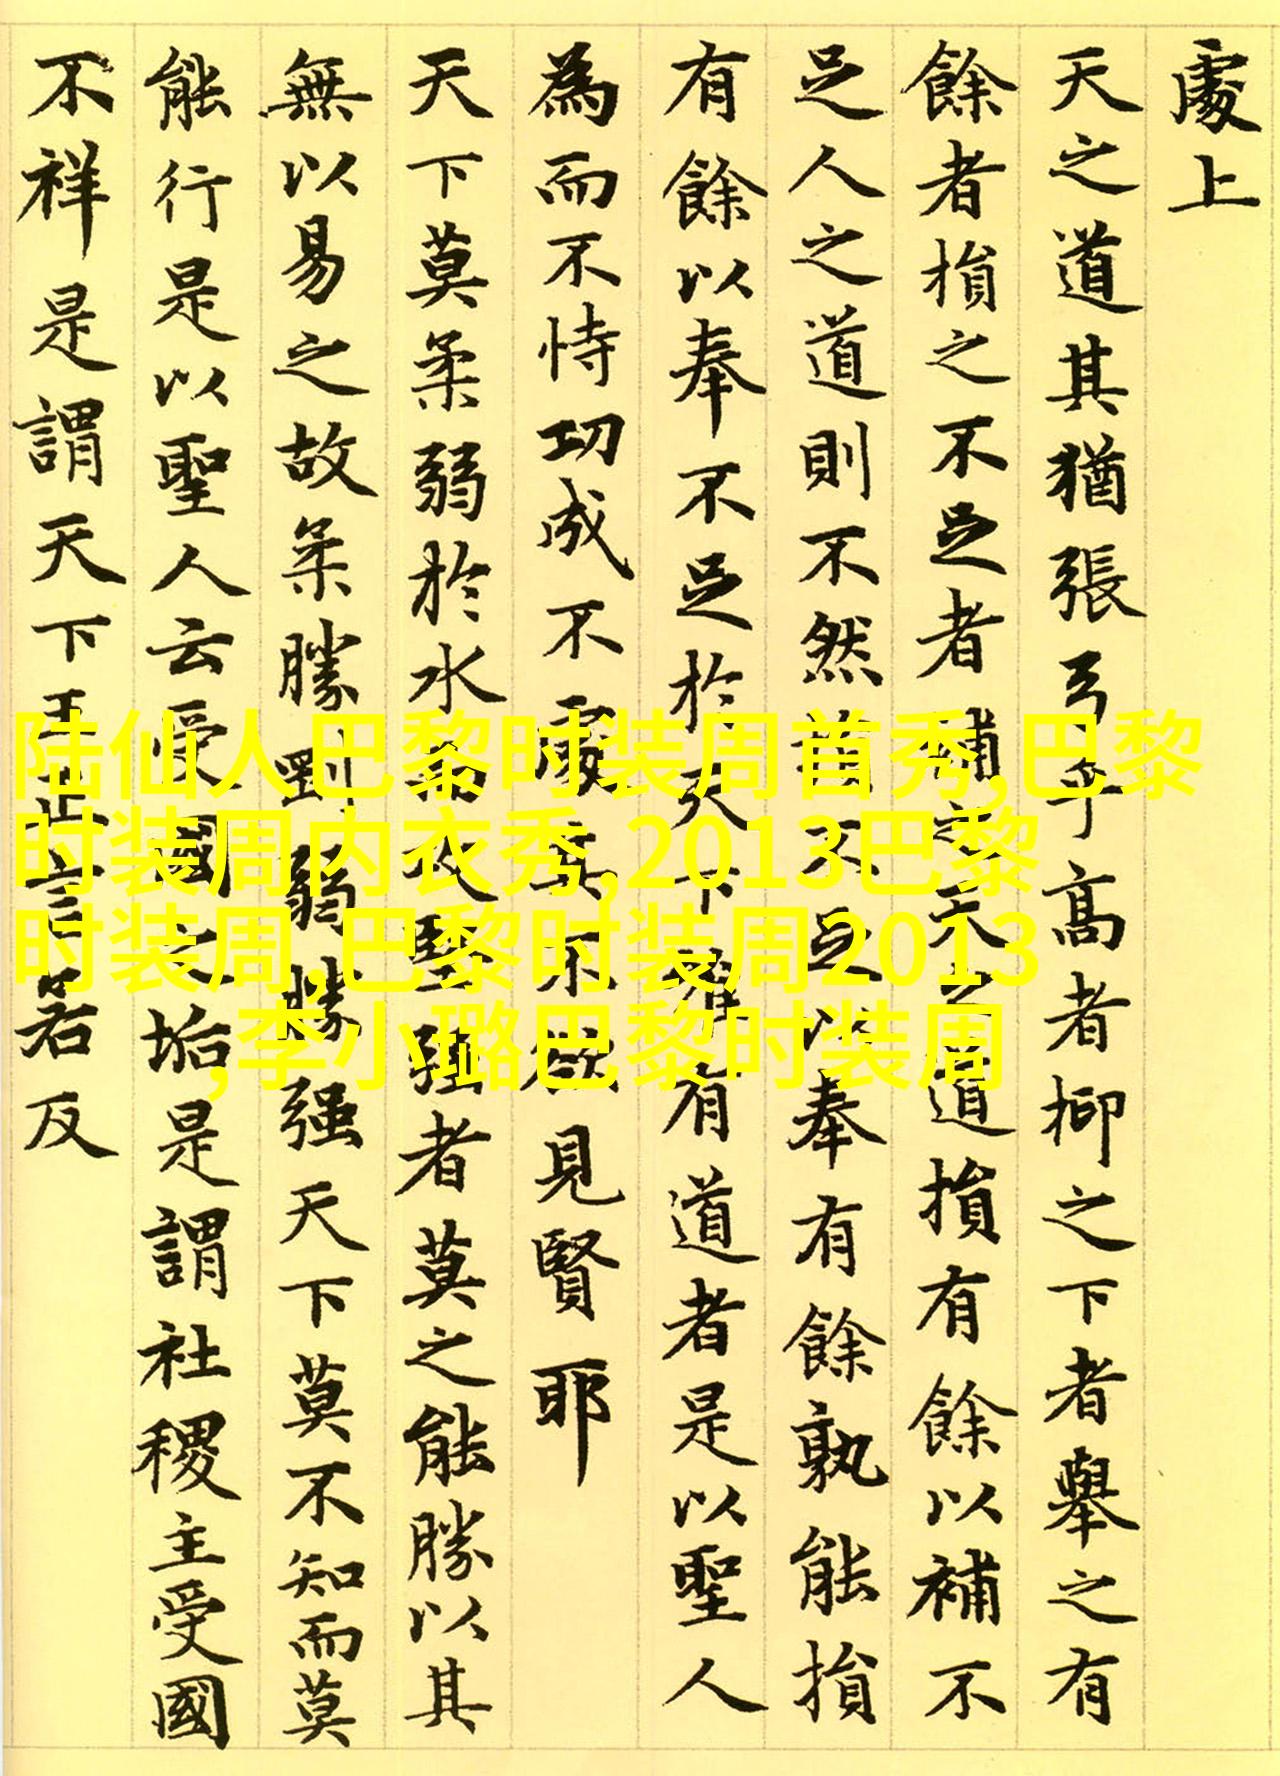 處上
天之道其猶張弓乎高者抑之下者舉之有
餘者損之不足者補之天之道損有餘以補不
足人之道則不然損不足以奉有餘孰能損
有餘以奉不足於天下唯有道者是以聖人
為而不恃功成不處其不欲見賢耶
天下莫柔弱於水而攻堅強者莫之能勝以其
無以易之故柔勝剛弱勝强天下莫不知而莫
能行是以聖人云受國之垢是謂社稷主受國
不祥是謂天下王正言若反
陆仙人巴黎时装周首秀,巴黎
时装周内衣秀,2013巴黎
时装周,巴黎时装周2013
,李小璐巴黎时装周